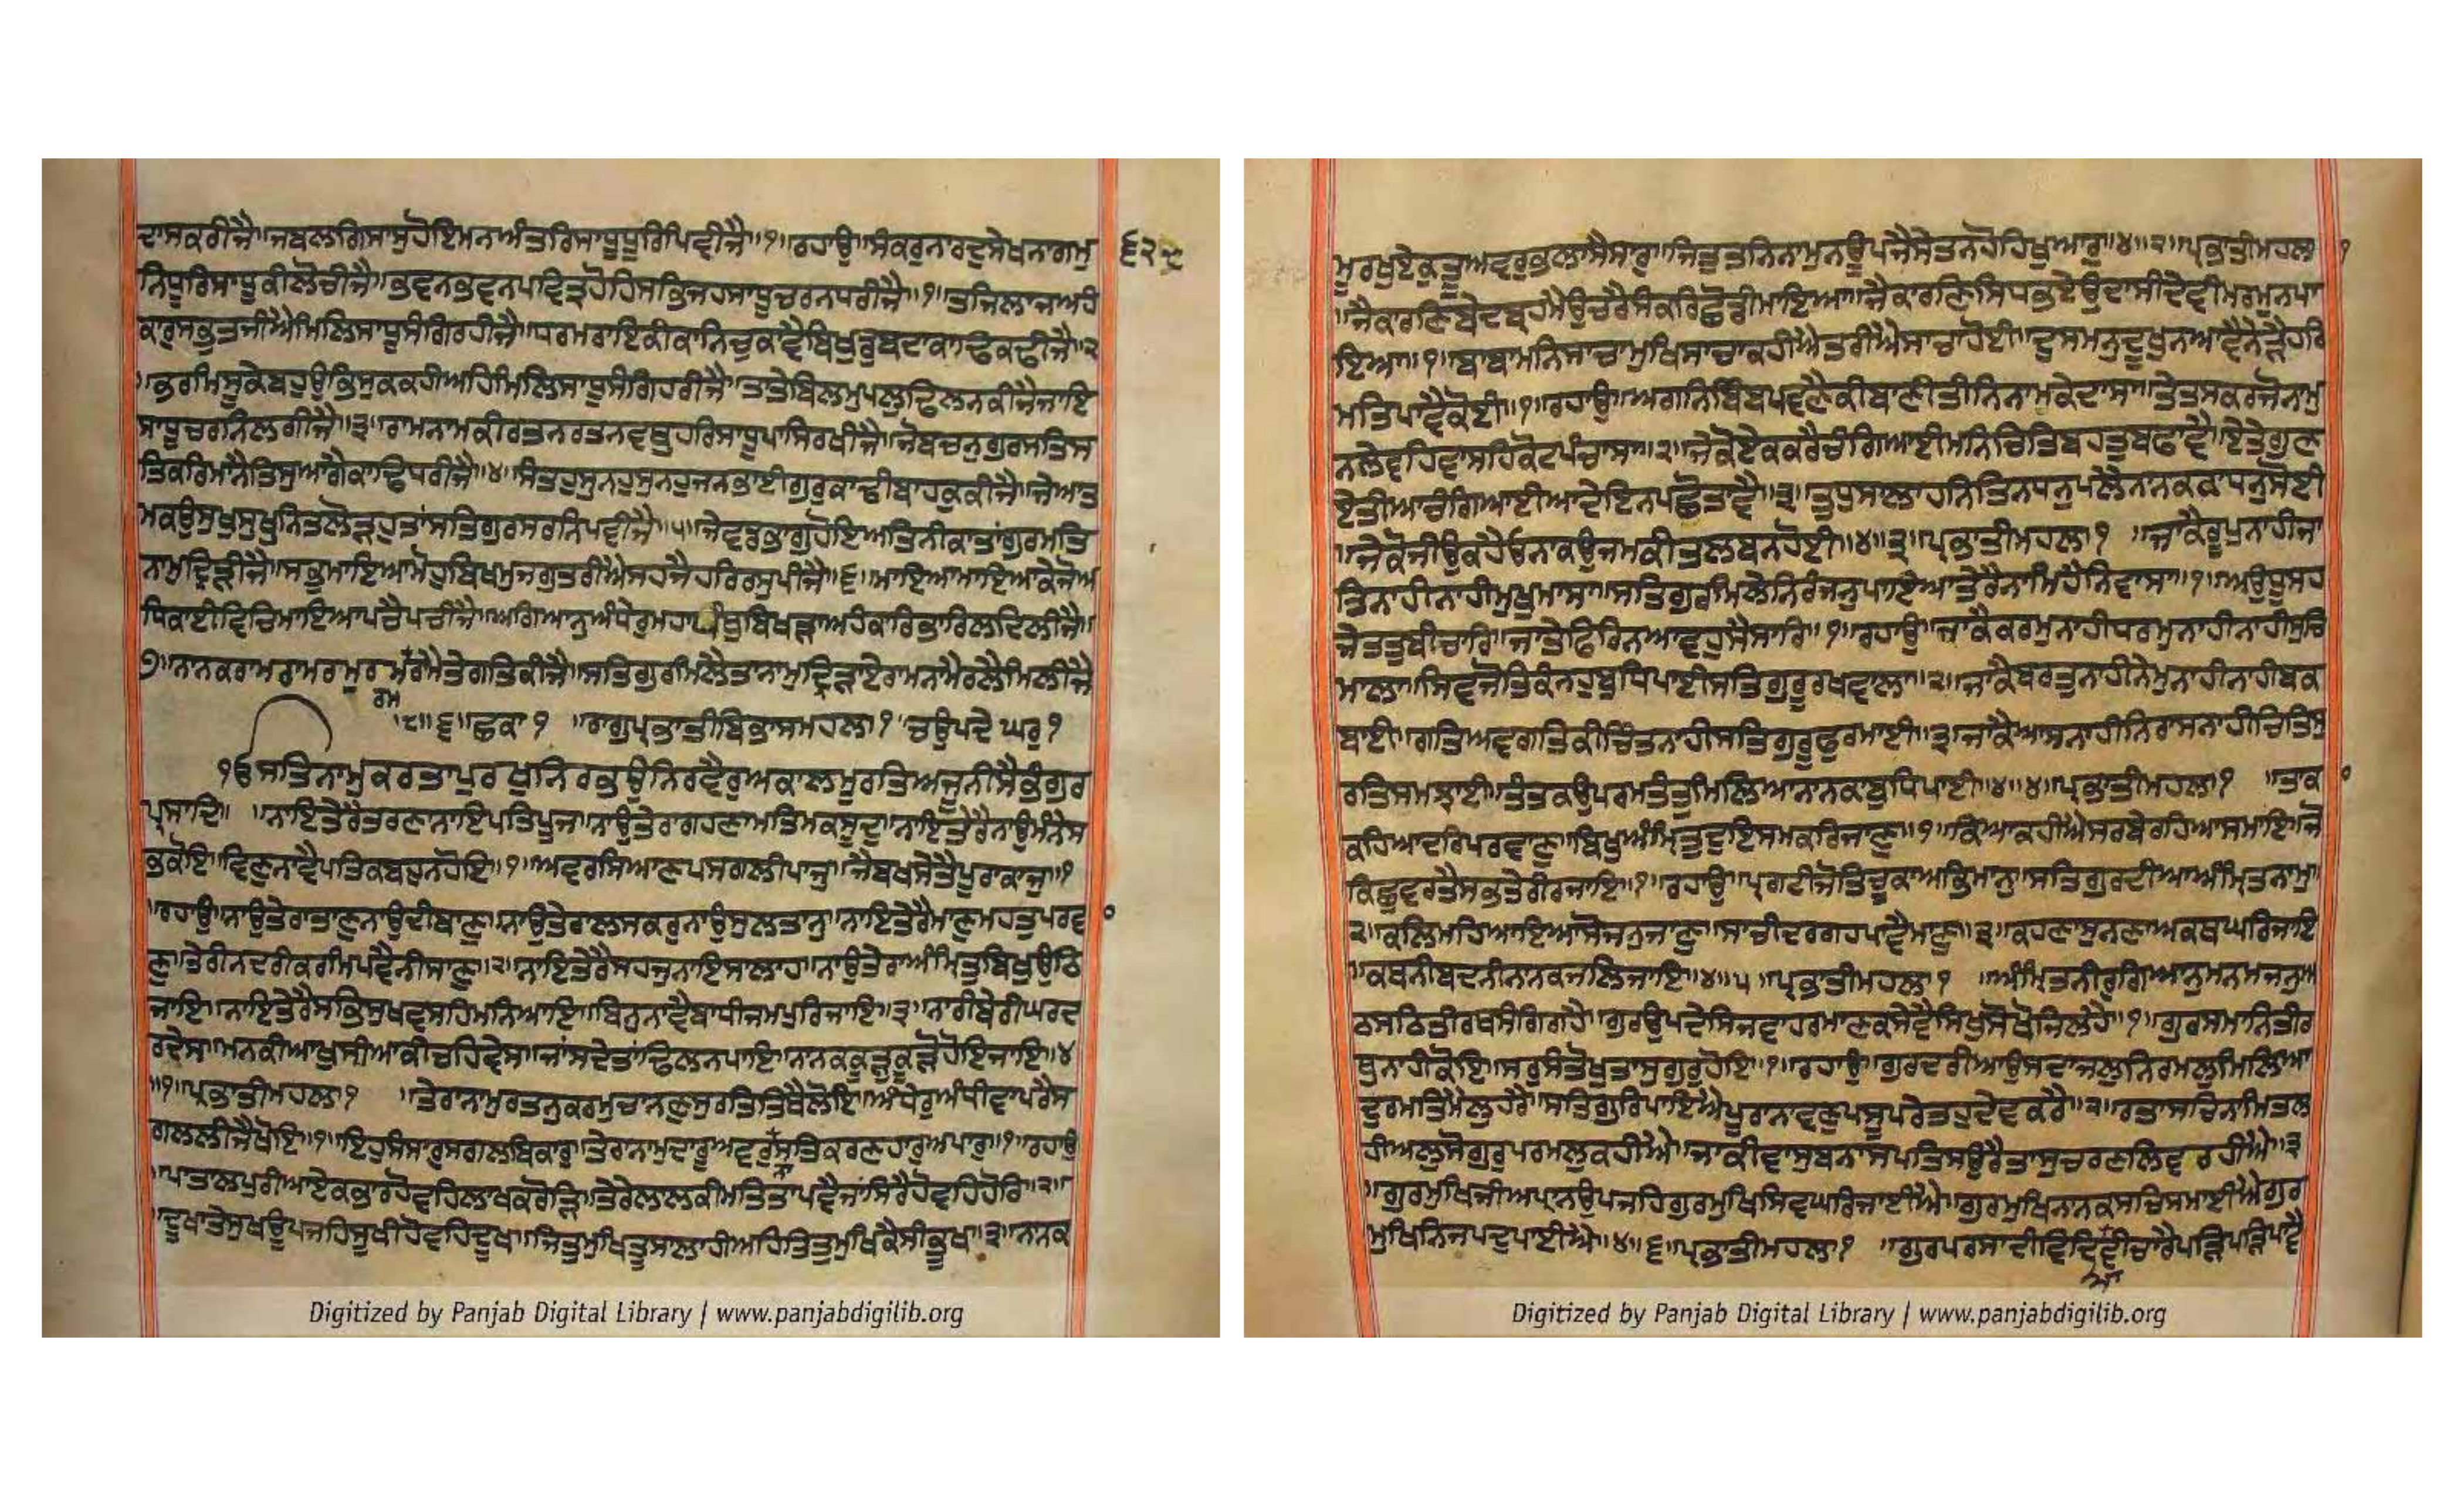 ਦਾਸਕਰੀਜੈ॥ਜਬਲਗਿਸਾਸੁਹੋਇਮਨਅੰਤਰਿਸਾਧੂਧੂਰਿਪਿਵੀਜੈ॥੧॥ਰਹਾਉ॥ਸੰਕਰੁਨਾਰਦੁਸੇਖਨਾਗਮੁ ੬੨੯
ਨਿਧੂਰਿਸਾਧੂਕੀਲੋਚੀਜੈ॥ਭਵਨਭਵਨਪਵਿਤੁਹੋਹਿਸਭਿਜਹਸਾਧੂਚਰਨਧਰੀਜੈ॥੧॥ਤਜਿਲਾਜਅਹੰ
ਕਾਰੁਸਭੁਤਜੀਐਮਿਲਿਸਾਧੂਸੰਗਿਰਹੀਜੈ॥ਧਰਮਰਾਇਕੀਕਾਨਿਚੁਕਾਵੈਬਿਖੁਡੁਬਦਾਕਾਢਿਕਢੀਜੈ॥੨
॥ਭਰਮਿਸੂਕੇਬਹੁਉਭਿਸੁਕਕਹੀਅਹਿਮਿਲਿਸਾਧੂਸੰਗਿਹਰੀਜੈ॥ਤਤੇਬਿਲਮੁਪਲੁਢਿਲਨਕੀਜੈਜਾਇ
ਸਾਧੂਚਰਨਿਲਗੀਜੈ॥੩॥ਰਾਮਨਾਮਕੀਰਤਨਰਤਨਵਥੁਹਰਿਸਾਧੂਪਾਸਿਰਖੀਜੈ॥ਜੋਬਚਨੁਗੁਰਸਤਿਸ
ਤਿਕਰਿਮਾਨੈਤਿਸੁਆਗੈਕਾਢਿਧਰੀਜੈ॥੪॥ਸੰਤਹੁਸੁਨਹੁਸੁਨਹੁਜਨਭਾਈਗੁਰੁਕਾਢੀਬਾਹਕੁਕੀਜੈ॥ਜੇਆਤ
ਮਕਉਸੁਖੁਸੁਖੁਨਿਤਲੋੜਹੁਤਾਂਸਤਿਗੁਰਸਰਨਿਪਵੀਜੈ॥੫॥ਜੇਵਡਭਾਗੁਹੋਇਅਤਿਨੀਕਾਤਾਂਗੁਰਮਤਿ
ਨਾਮੁਦ੍ਰਿੜੀਜੈ॥ਸਭੁਮਾਇਆਮੋਹੁਬਿਖਮੁਜਗੁਤਰੀਐਸਹਜੈਹਰਿਰਸੁਪੀਜੈ॥੬॥ਮਾਇਆਮਾਇਆਕੇਜੋਅ
ਧਿਕਾਈਵਿਚਿਮਾਇਆਪਚੈਪਚੀਜੈ॥ਅਗਿਆਨੁਅੰਧੇਰੁਮਹਾਪੰਥੁਬਿਖੜਾਅਹੰਕਾਰਿਭਾਰਿਲਦਿਲੀਜੈ॥
੭॥ਨਾਨਕਰਾਮਰਾਮਰਮੁਰਮਰਾਮੈਤੇਗਤਿਕੀਜੈ॥ਸਤਿਗੁਰੁਮਿਲੈਤਾਨਾਮੁਦ੍ਰਿੜਾਏਰਾਮਨਾਮੈਰਲੈਮਿਲੀਜੈ
ਰਮ
॥੮॥੬॥ਛਕਾ੧ ॥ਰਾਗੁਪ੍ਰਭਾਤੀਬਿਭਾਸਮਹਲਾ੧ ਚਉਪਦੇਘਰੁ੧
ੴਸਤਿਨਾਮੁਕਰਤਾਪੁਰਖੁਨਿਰਭਉਨਿਰਵੈਰੁਅਕਾਲਮੂਰਤਿਅਜੂਨੀਸੈਭੰਗੁਰ
ਪ੍ਰਸਾਦਿ॥ ॥ਨਾਇਤੇਰੈਤਰਣਾਨਾਇਪਤਿਪੂਜ॥ਨਾਉਤੇਰਾਗਹਣਾਮਤਿਮਕਸੂਦੁ॥ਨਾਇਤੇਰੈਨਾਉਮੰਨੇਸ
ਭਕੋਇ॥ਵਿਣੁਨਾਵੈਪਤਿਕਬਹੁਨਹੋਇ॥੧॥ਅਵਰਸਿਆਣਪਸਗਲੀਪਾਜੁ॥ਜੈਬਖਸੇਤੈਪੂਰਾਕਾਜੁ॥੧
॥ਰਹਾਉ॥ਨਾਉਤੇਰਾਤਾਣੁਨਾਉਦੀਬਾਣੁ॥ਨਾਉਤੇਰਾਲਸਕਰੁਨਾਉਸੁਲਤਾਨੁ॥ਨਾਇਤੇਰੈਮਾਣੁਮਹਤੁਪਰਵ
ਣੁ॥ਤੇਰੀਨਦਰੀਕਰਮਿਪਵੈਨੀਸਾਣੁ॥੨॥ਨਾਇਤੇਰੈਸਹਜੁਨਾਇਸਾਲਾਹ॥ਨਾਉਤੇਰਾਅੰਮ੍ਰਿਤੁਬਿਖੁਉਠਿ
ਜਾਇ॥ਨਾਇਤੇਰੈਸਭਿਸੁਖਵਸਹਿਮਨਿਆਇ॥ਬਿਨੁਨਾਵੈਬਾਧੀਜਮਪੁਰਿਜਾਇ॥੩॥ਨਾਰੀਬੇਰੀਘਰਦ
ਰਦੇਸ॥ਮਨਕੀਆਖੁਸੀਆਕੀਚਹਿਵੇਸ॥ਜਾਂਸਦੇਤਾਂਢਿਲਨਪਾਇ॥ਨਾਨਕਕੂੜੁਕੂੜੋਹੋਇਜਾਇ॥੪
॥੧॥ਪ੍ਰਭਾਤੀਮਹਲਾ੧ ॥ਤੇਰਾਨਾਮੁਰਤਨੁਕਰਮੁਚਾਨਣੁਸੁਰਤਿਤਿਥੈਲੋਇ॥ਅੰਧੇਰੁਅੰਧੀਵਾਪਰੈਸ
ਗਲਲੀਜੈਖੋਇ॥੧॥ਇਹੁਸੰਸਾਰੁਸਗਲਬਿਕਾਰੁ॥ਤੇਰਾਨਾਮੁਦਾਰੂਅਵਰੁਸਤਿਕਰਣਹਾਰੁਅਪਾਰੁ॥੧॥ਰਹਾਉ
॥ਪਾਤਾਲਪੁਰੀਆਏਕਭਾਰਹੋਵਹਿਲਾਖਕਰੋੜਿ॥ਤੇਰੇਲਾਲਕੀਮਤਿਤਾਪਵੈਜਾਂਸਿਰੈਹੋਵਹਿਹੋਰਿ॥੨॥
॥ਦੂਖਾਤੇਸੁਖਊਪਜਹਿਸੂਖੀਹੋਵਹਿਦੂਖ॥ਜਿਤੁਮੁਖਿਤੂਸਾਲਾਹੀਅਹਿਤਿਤੁਮੁਖਿਕੈਸੀਭੂਖ॥੩॥ਨਾਨਕ
ਮੂਰਖੁਏਕੁਤੂਅਵਰੁਭਲਾਸੈਸਾਰੁ॥ਜਿਤੁਤਨਿਨਾਮੁਨਊਪਜੈਸੇਤਨਹੋਹਿਖੁਆਰੁ॥੪॥੨॥ਪ੍ਰਭਾਤੀਮਹਲਾ ੧
॥ਜੈਕਾਰਣਿਬੇਦਬ੍ਰਹਮੈਉਚਰੈਸੰਕਰਿਛੋਡੀਮਾਇਆ॥ਜੈਕਾਰਣਿਸਿਧਭਏਉਦਾਸੀਦੇਵੀਮਰਮੁਨਪਾ
ਇਆ॥੧॥ਬਾਬਾਮਨਿਸਾਚਾਮੁਖਿਸਾਚਾਕਹੀਐਤਰੀਐਸਾਚਾਹੋਈ॥ਦੁਸਮਨੁਦੂਖੁਨਆਵੈਨੇੜੈਹਰਿ
ਮਤਿਪਾਵੈਕੋਈ॥੧॥ਰਹਾਉ॥ਅਗਨਿਬਿੰਬਪਵਣੈਕੀਬਾਣੀਤੀਨਿਨਾਮਕੇਦਾਸਾ॥ਤੇਤਸਕਰਜੋਨਾਮੁ
ਨਲੇਵਹਿਵਾਸਹਿਕੋਟਪੰਚਾਸਾ॥੨॥ਜੇਕੋਏਕਕਰੈਚੰਗਿਆਈਮਨਿਚਿਤਿਬਹੁਤੁਬਫਾਵੈ॥ਏਤੇਗੁਣ
ਏਤੀਆਚੰਗਿਆਈਆਦੇਇਨਪਛੋਤਾਵੈ॥੩॥ਤੁਧੁਸਾਲਾਹਨਿਤਿਨਧਨੁਪਲੈਨਾਨਕਕਾਧਨੁਸੋਈ
॥ਜੇਕੋਜੀਉਕਹੈਓਨਾਕਉਜਮਕੀਤਲਬਨਹੋਈ॥੪॥੩॥ਪ੍ਰਭਾਤੀਮਹਲਾ੧ ॥ਜਾਕੈਰੂਪੁਨਾਹੀਜਾ
ਤਿਨਾਹੀਨਾਹੀਮੁਖੁਮਾਸਾ॥ਸਤਿਗੁਰਮਿਲੇਨਿਰੰਜਨੁਪਾਇਆਤੇਰੈਨਾਮਿਹੈਨਿਵਾਸਾ॥੧॥ਅਉਧੂਸਹ
ਜੇਤਤੁਬੀਚਾਰਿ॥ਜਾਤੇਫਿਰਿਨਆਵਹੁਸੈਸਾਰਿ॥੧॥ਰਹਾਉ॥ਜਾਕੈਕਰਮੁਨਾਹੀਧਰਮੁਨਾਹੀਨਾਹੀਸੁਚਿ
ਮਾਲਾ॥ਸਿਵਜੋਤਿਕੰਨਹੁਬੁਧਿਪਾਈਸਤਿਗੁਰੂਰਖਵਾਲਾ॥੨॥ਜਾਕੈਬਰਤੁਨਾਹੀਨੇਮੁਨਾਹੀਨਾਹੀਬਕ
ਬਾਈ॥ਗਤਿਅਵਗਤਿਕੀਚਿੰਤਨਾਹੀਸਤਿਗੁਰੂਫੁਰਮਾਈ॥੩॥ਜਾਕੈਆਸਨਾਹੀਨਿਰਾਸਨਾਹੀਚਿਤਿਸੁ
ਰਤਿਸਮਝਾਈ॥ਤੰਤਕਉਪਰਮਤੰਤੁਮਿਲਿਆਨਾਨਕਬੁਧਿਪਾਈ॥੪॥੪॥ਪ੍ਰਭਾਤੀਮਹਲਾ੧ ॥ਤਾਕਾ
ਕਹਿਆਦਰਿਪਰਵਾਣੁ॥ਬਿਖੁਅੰਮ੍ਰਿਤੁਦੁਇਸਮਕਰਿਜਾਣੁ॥੧॥ਕਿਆਕਹੀਐਸਰਬੇਰਹਿਆਸਮਾਇ॥ਜੋ
ਕਿਛੁਵਰਤੈਸਭਤੇਰੀਰਜਾਇ॥੧॥ਰਹਾਉ॥ਪ੍ਰਗਟੀਜੋਤਿਚੂਕਾਅਭਿਮਾਨੁ॥ਸਤਿਗੁਰਦੀਆਅੰਮ੍ਰਿਤਨਾਮੁ॥
੨॥ਕਲਿਮਹਿਆਇਆਸੋਜਨੁਜਾਣੁ॥ਸਾਚੀਦਰਗਹਪਾਵੈਮਾਣੁ॥੩॥ਕਹਣਾਸੁਨਣਾਅਕਥਘਰਿਜਾਇ
॥ਕਥਨੀਬਦਨੀਨਾਨਕਜਲਿਜਾਇ॥੪॥੫॥ਪ੍ਰਭਾਤੀਮਹਲਾ੧ ॥ਅੰਮ੍ਰਿਤਨੀਰੁਗਿਆਨੁਮਨਮਜਨੁਅ
ਠਸਠਿਤੀਰਥਸੰਗਿਗਹੈ॥ਗੁਰਉਪਦੇਸਿਜਵਾਹਰਮਾਣਕਸੇਵੈਸਿਖੁਸੋਖੋਜਿਲਹੈ॥੧॥ਗੁਰਸਮਾਨਿਤੀਰ
ਥੁਨਾਹੀਕੋਇ॥ਸਰੁਸੰਤੋਖੁਤਾਸੁਗੁਰੁਹੋਇ॥੧॥ਰਹਾਉ॥ਗੁਰਦਰੀਆਉਸਦਾਜਲੁਨਿਰਮਲੁਮਿਲਿਆ
ਦੁਰਮਤਿਮੈਲੁਹਰੈ॥ਸਤਿਗੁਰਿਪਾਇਐਪੂਰਾਨਾਵਣੁਪਸੂਪਰੇਤਹੁਦੇਵਕਰੈ॥੨॥ਰਤਾਸਚਿਨਾਮਿਤਲ
ਹੀਅਲੁਸੋਗੁਰੁਪਰਮਲੁਕਹੀਐ॥ਜਾਕੀਵਾਸੁਬਨਾਸਪਤਿਸਉਰੈਤਾਸੁਚਰਣਲਿਵਰਹੀਐ॥੩
॥ਗੁਰਮੁਖਿਜੀਅਪ੍ਰਾਨਉਪਜਹਿਗੁਰਮੁਖਿਸਿਵਘਰਿਜਾਈਐ॥ਗੁਰਮੁਖਿਨਾਨਕਸਚਿਸਮਾਈਐਗੁਰ
ਮੁਖਿਨਿਜਪਦੁਪਾਈਐ॥੪॥੬॥ਪ੍ਰਭਾਤੀਮਹਲਾ੧ ॥ਗੁਰਪਰਸਾਦੀਵਿਦਿਵੀਚਾਰੈਪੜਿਪੜਿਪਾਵੈ
ਆ
Digitized by Panjab Digital Library | www.panjabdigilib.org
Digitized by Panjab Digital Library | www.panjabdigilib.org